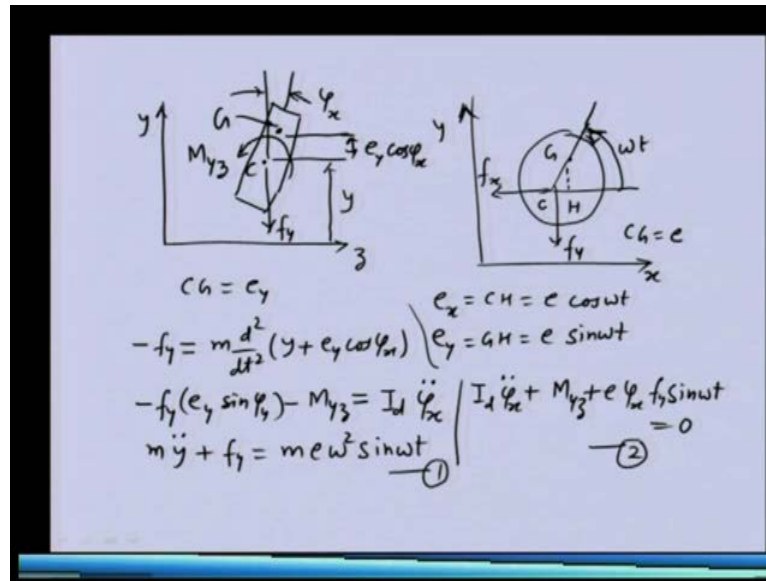 y
G
φx
Myz
C
ey cosφx
y
fy
z
y
G
ωt
fx
C
H
fy
CG = e
x
CG = ey
ex = CH = e cosωt
ey = GH = e sinωt
-fy = m d²/dt² (y + ey cosφx)
-fy(ey sinφy) - Myz = Id φ̈x
Id φ̈x + Myz + e φx fy sinωt = 0
②
mÿ + fy = meω² sinωt
①